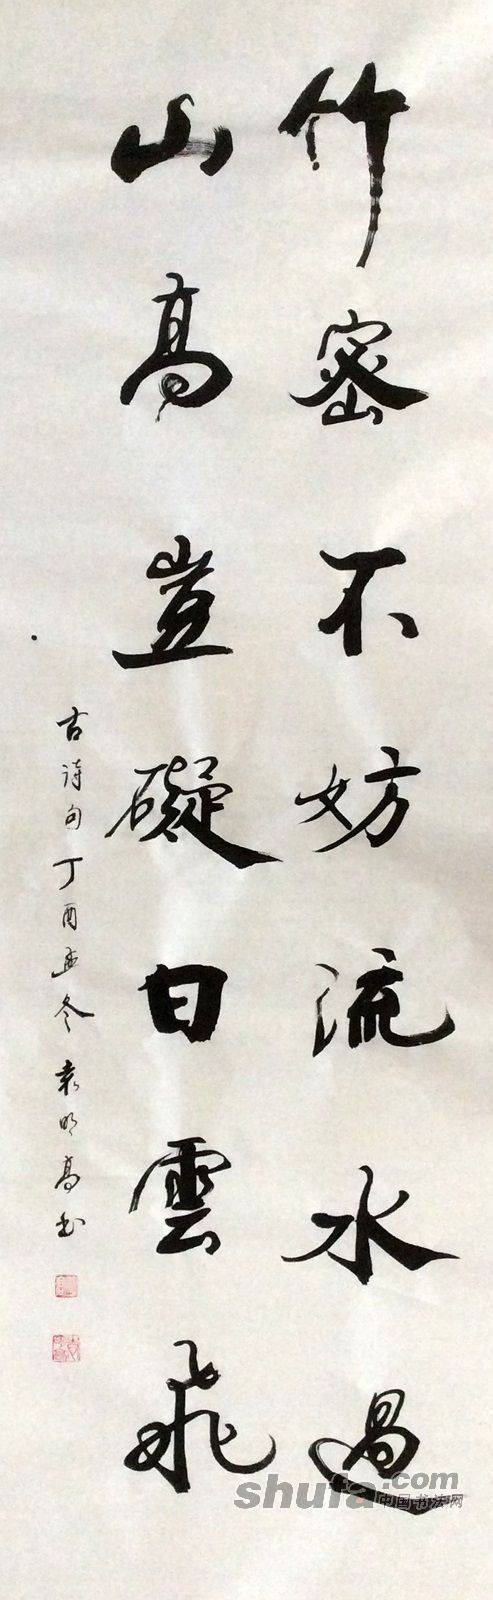 竹密不妨流水過
山高豈礙白雲飛
古诗句丁酉孟冬袁明高书
shufa.com
中国书法网